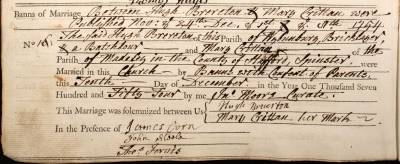 Banns of Marriage Between Hugh Brereton & Mary Cottan were
Published Nov: 24th Dec: 1st & 8th 1754.
No The said Hugh Brereton of this Parish of Brick layer
a Batchelour and Mary Cottan of the
Parish of Madeley in the County of Stafford, Spinster were
Married in this Church by Banns with Consent of Parents
this Tenth Day of December in the Year One Thousand Seven
Hundred and Fifty four by me Jno. Moory Curate.
This Marriage was solemnized between Us Hugh Bruerton
Mary Cottan her Mark
In the Presence of James
John
Thos.